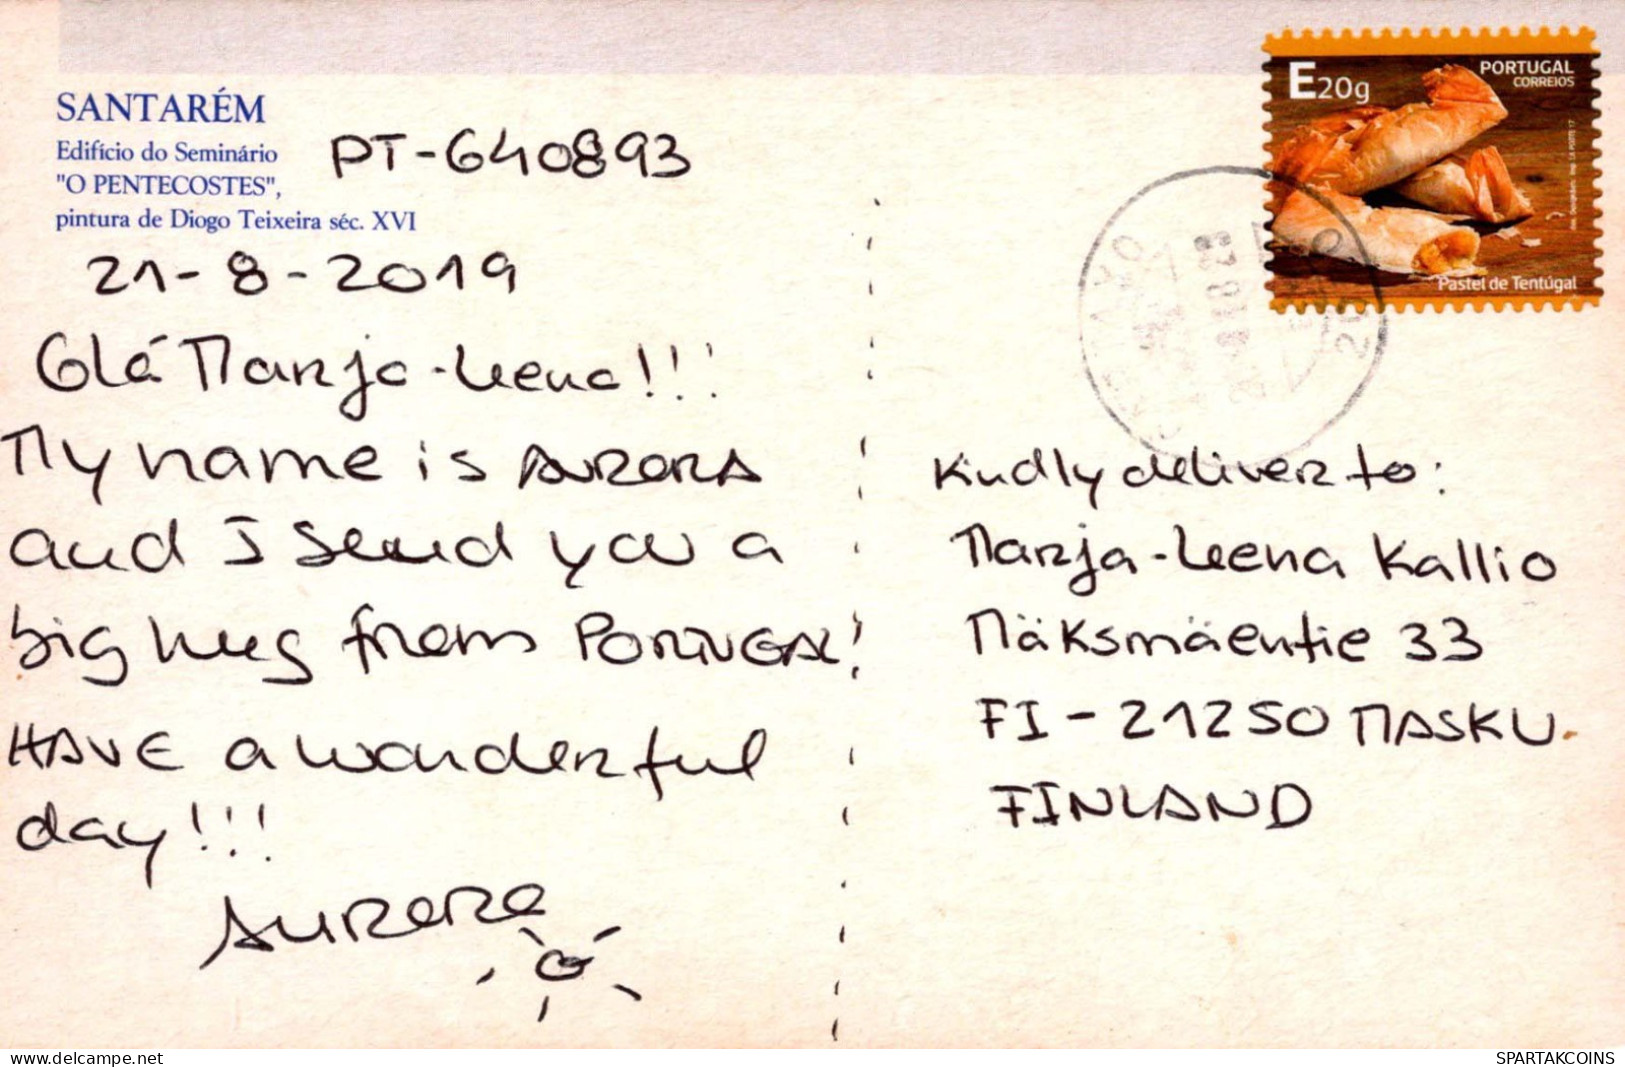 SANTARÉM
Edifício do Seminário
"O PENTECOSTES",
pintura de Diogo Teixeira séc. XVI
PT-640893
21-8-2019
Olá Marja-Leena!!!
My name is AURORA
and I send you a
big hug from PORTUGAL!
HAVE a wonderful
day!!!
Aurora
E20g
PORTUGAL
CORREIOS
Pastel de Tentúgal
Kindly deliver to:
Marja-Leena Kallio
Mäksmäentie 33
FI-21250 MASKU.
FINLAND
www.delcampe.net
SPARTAKCOINS